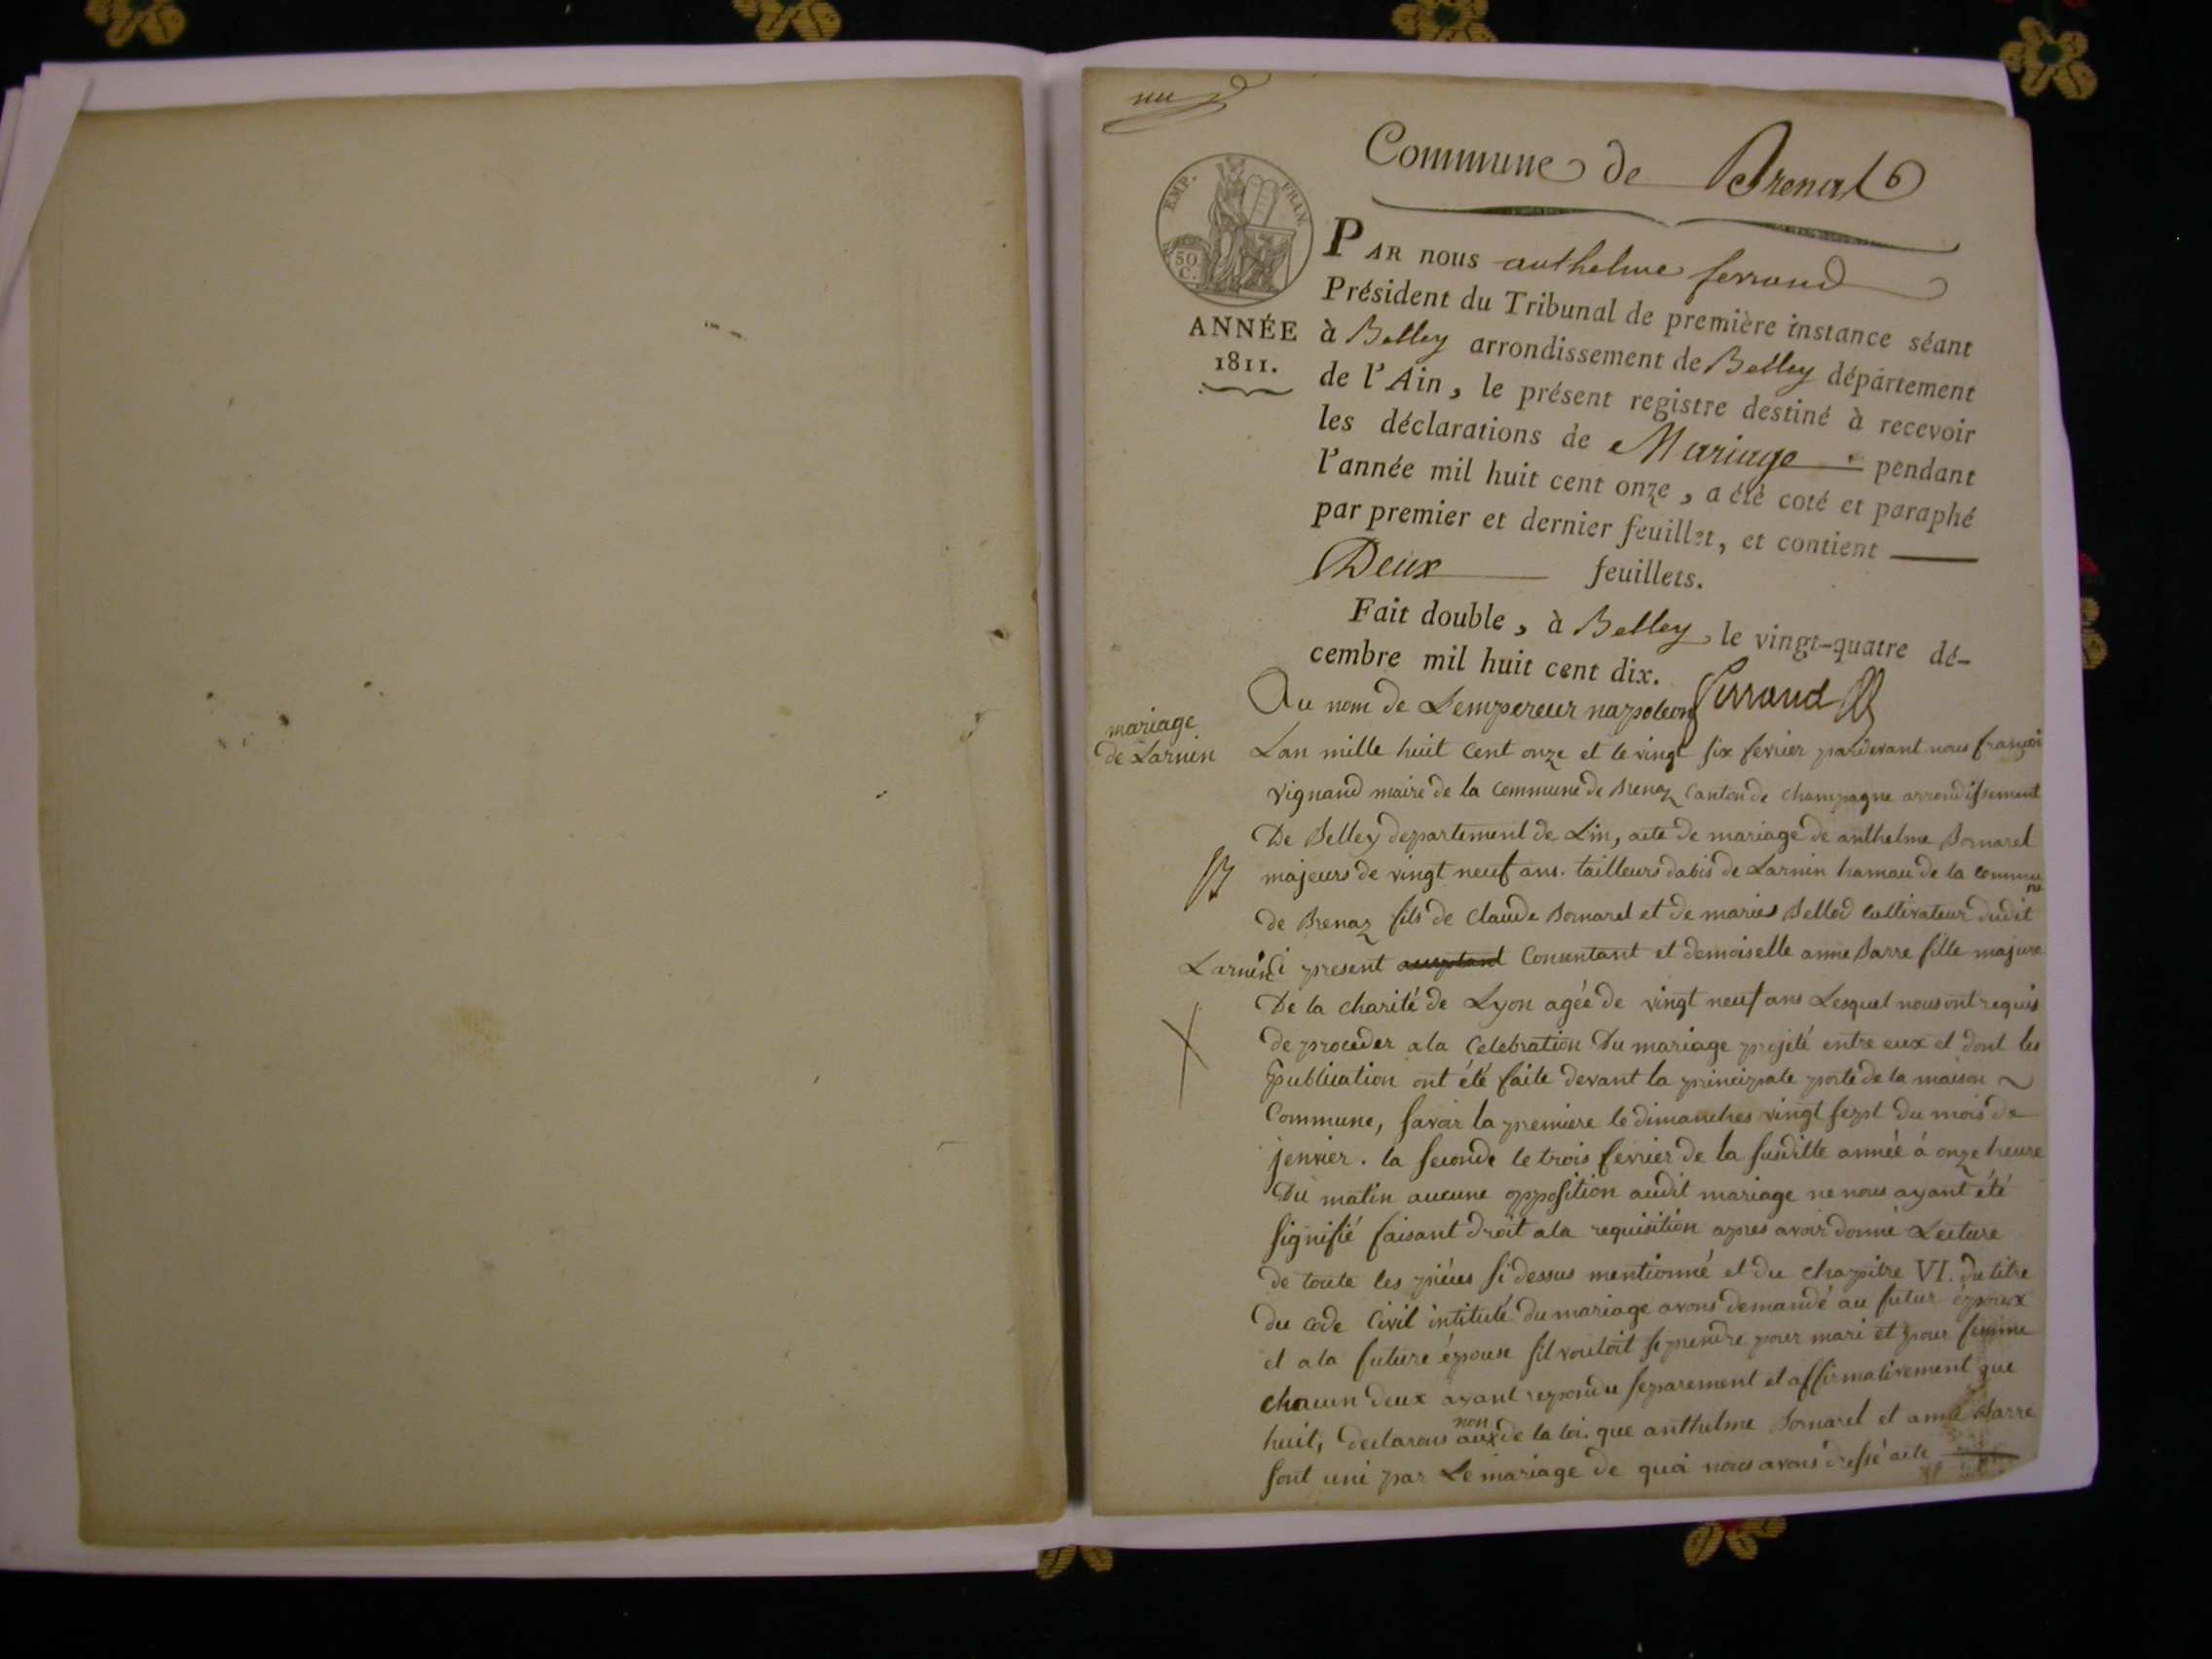 Commune de Brenat
EMP. FRAN.
50 C.
ANNÉE
1811.
PAR nous anthelme ferrand
Président du Tribunal de première instance séant
à Belley arrondissement de Belley département
de l'Ain, le présent registre destiné à recevoir
les déclarations de Mariage pendant
l'année mil huit cent onze, a été coté et paraphé
par premier et dernier feuillet, et contient
Deux feuillets.
Fait double, à Belley, le vingt-quatre dé-
cembre mil huit cent dix. Ferrand
Au nom de Lempereur napoleon
mariage
de Larnin
Lan mille huit cent onze et le vingt six fevrier pardevant nous françoi
vignand maire de la commune de Brenaz Canton de champagne arrondissement
De Belley departement de Lin, acte de mariage de anthelme Bornarel
majeurs de vingt neuf ans. tailleurs dabis de Larnin hamau de la commu
ne
de Brenaz fils de Claude Bornarel et de maries Bellod cultivateur dudit
Larnin ci present Consentant et demoiselle anne Barre fille majure
De la charité de Lyon agée de vingt neuf ans Lesquel nous ont requis
de proceder a la Celebration Du mariage projeté entre eux et dont les
publication ont été faite devant la principale porte de la maison
Commune, savoir la premiere le dimanches vingt sept du mois de
jenvier. la seconde le trois fevrier de la susditte année á onze heure
Du matin aucune opposition audit mariage ne nous ayant été
signifié faisant droit a la requisition apres avoir donné Lecture
de toute les piéces si dessus mentionné et du chapitre VI. du titre
du code Civil intitulé du mariage avons demandé au futur époux
et a la future épouse sil vouloit se prendre pour mari et pour femme
chacun deux ayant repondu separement et affirmativement que
huit, declarons aux non de la loi que anthelme Bornarel et anne Barre
sont uni par Le mariage de quoi nous avons dressé acte